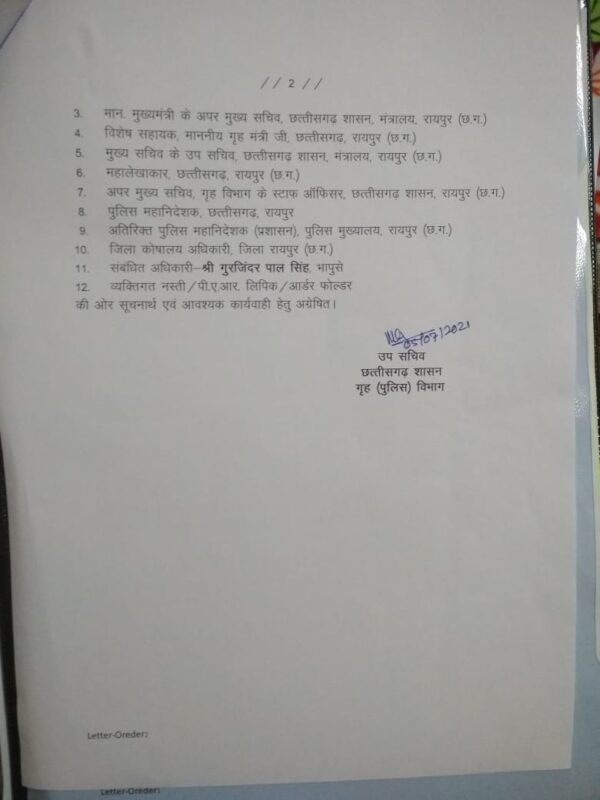 // 2 //
3. मान. मुख्यमंत्री के अपर मुख्य सचिव, छत्तीसगढ़ शासन, मंत्रालय, रायपुर (छ.ग.)
4. विशेष सहायक, माननीय गृह मंत्री जी, छत्तीसगढ़, रायपुर (छ.ग.)
5. मुख्य सचिव के उप सचिव, छत्तीसगढ़ शासन, मंत्रालय, रायपुर (छ.ग.)
6. महालेखाकार, छत्तीसगढ़, रायपुर (छ.ग.)
7. अपर मुख्य सचिव, गृह विभाग के स्टाफ ऑफिसर, छत्तीसगढ़ शासन, रायपुर (छ.ग.)
8. पुलिस महानिदेशक, छत्तीसगढ़, रायपुर
9. अतिरिक्त पुलिस महानिदेशक (प्रशासन), पुलिस मुख्यालय, रायपुर (छ.ग.)
10. जिला कोषालय अधिकारी, जिला रायपुर (छ.ग.)
11. संबंधित अधिकारी–श्री गुरजिंदर पाल सिंह, भापुसे
12. व्यक्तिगत नस्ती/पी.ए.आर. लिपिक/आर्डर फोल्डर
की ओर सूचनार्थ एवं आवश्यक कार्यवाही हेतु अग्रेषित।
05/07/2021
उप सचिव
छत्तीसगढ़ शासन
गृह (पुलिस) विभाग
Letter-Oreder:
Letter-Oreder: